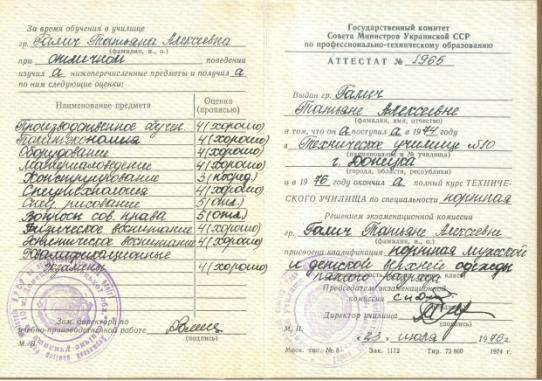 За время обучения в училище
гр. Галич Татьяна Алексеевна
(фамилия, и., о.)
при отличном поведения
изучил а нижеперечисленные предметы и получил а
по ним следующие оценки:
Наименование предмета
Оценка (прописью)
Производственное обучен. 4 (хорошо)
Политэкономия 4 (хорошо)
Оборудование 4 (хорошо)
Материаловедение 4 (хорошо)
Конструирование 3 (посред)
Спецтехнология 4 (хорошо)
Спец. рисование 5 (отл.)
Вопросы сов. права 5 (отл.)
Физическое воспитание 4 (хорошо)
Эстетическое воспитание 4 (хорошо)
Квалификационные
экзамены 4 (хорошо)
Зам. директора по
учебно-производственной работе
(подпись)
М. П.
Государственный комитет
Совета Министров Украинской ССР
по профессионально-техническому образованию
АТТЕСТАТ № 1965
Выдан гр. Галич
Татьяне Алексеевне
(фамилия, имя, отчество)
в том, что он а поступил а в 1974 году
в Техническое училище №10
(наименование училища)
г. Донецка
(города, области, республики)
и в 1976 году окончил а полный курс ТЕХНИЧЕ-
СКОГО УЧИЛИЩА по специальности портная
Решением экзаменационной комиссии
гр. Галич Татьяне Алексеевне
(фамилия, и., о.)
присвоена квалификация портная мужской
и детской верхней одежды
разряда
Председатель экзаменационной
комиссии
Директор училища
(подпись)
М. П.
23 июля 1976 г.
Моск. тип. № 8 Зак. 1112 Тир. 73 800 1974 г.